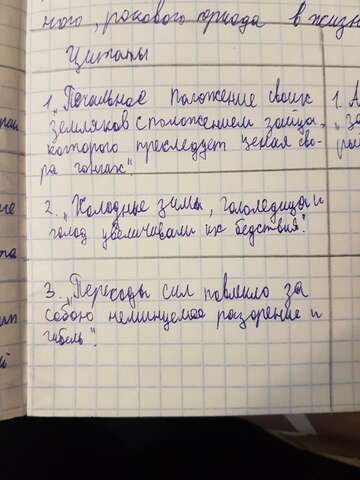 ного, рокового прихода в жизн
Цитаты
1. „Печальное положение своих
земляков с положением зайца,
которого преследует целая сво-
ра гончих".
2. „Холодные зимы, гололедицы и
голод увеличивали их бедствия".
3. „Переходы сил повлекло за
собою неминуемое разорение и
гибель".
1. А
„за